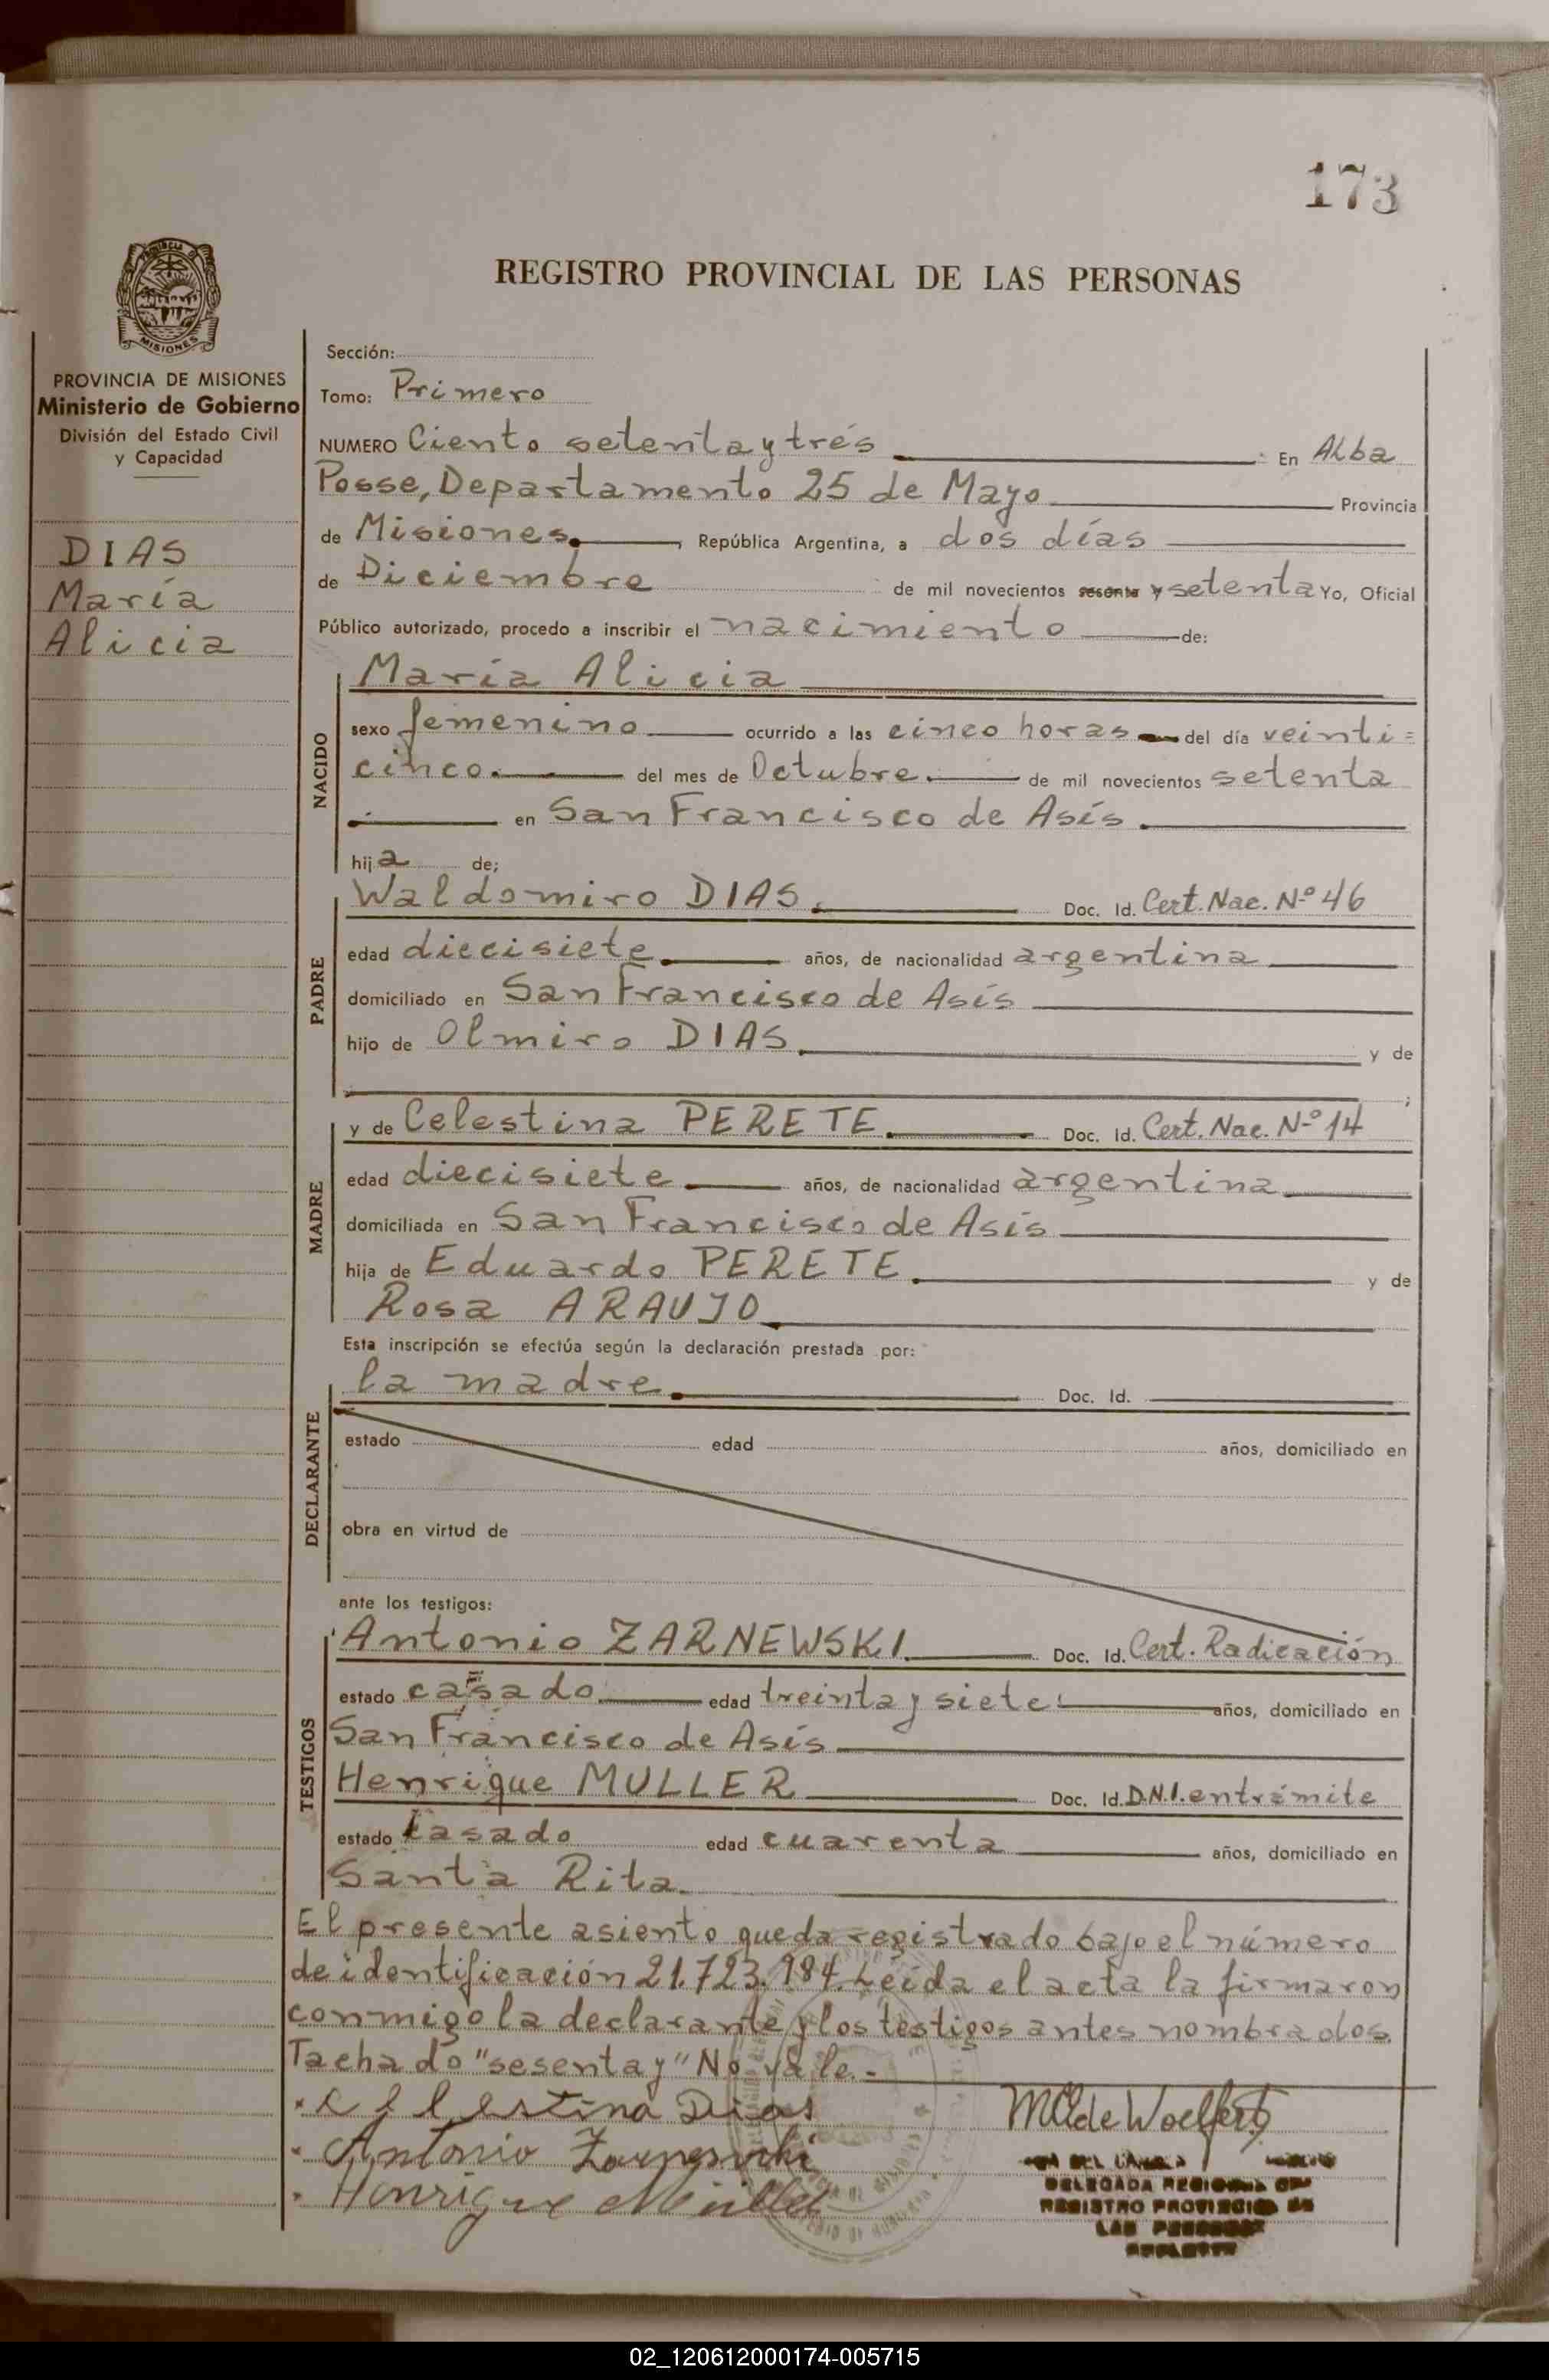 173
PROVINCIA DE MISIONES
Ministerio de Gobierno
División del Estado Civil
y Capacidad
DIAS
María
Alicia
REGISTRO PROVINCIAL DE LAS PERSONAS
Sección:
Tomo: Primero
NUMERO Ciento setenta y trés En Alba
Posse, Departamento 25 de Mayo Provincia
de Misiones, República Argentina, a dos días
de Diciembre de mil novecientos sesenta y setenta Yo, Oficial
Público autorizado, procedo a inscribir el nacimiento de:
María Alicia
NACIDO
sexo femenino ocurrido a las cinco horas del día veinti=
cinco. del mes de Octubre. de mil novecientos setenta
en San Francisco de Asís.
hija de;
PADRE
Waldomiro DIAS. Doc. Id. Cert. Nac. Nº 46
edad diecisiete años, de nacionalidad argentina
domiciliado en San Francisco de Asís
hijo de Olmiro DIAS. y de
;
MADRE
y de Celestina PERETE. Doc. Id. Cert. Nac. Nº 14
edad diecisiete años, de nacionalidad argentina
domiciliada en San Francisco de Asís
hija de Eduardo PERETE. y de
Rosa ARAUJO
Esta inscripción se efectúa según la declaración prestada por:
DECLARANTE
la madre. Doc. Id.
estado edad años, domiciliado en
obra en virtud de
ante los testigos:
TESTIGOS
Antonio ZARNEWSKI. Doc. Id. Cert. Radicación
estado casado edad treinta y siete años, domiciliado en
San Francisco de Asís
Henrique MULLER Doc. Id. D.N.I. en trámite
estado Casado edad cuarenta años, domiciliado en
Santa Rita.
El presente asiento queda registrado bajo el número
de identificación 21.723.984. Leída el acta la firmaron
conmigo la declarante y los testigos antes nombrados.
Tachado "sesenta y" No vale.-
Celestina Dias
Antonio Zarnewski
Henrique Müller
DELEGADA REGIONAL DEL
REGISTRO PROVINCIAL DE
LAS PERSONAS
02_120612000174-005715